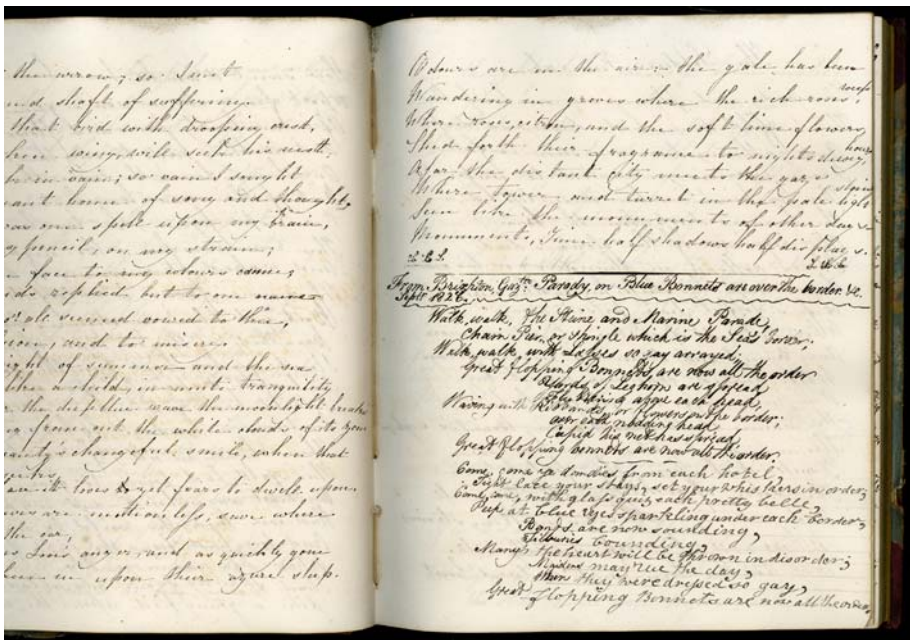 the arrow; so I met
shaft of suffering.
that bird with drooping crest,
wing, will seek his nest
in vain; so vain I sought
home of song and thought;
one spell upon my brain,
pencil, on my strain;
face to my colours came;
replied but to one name
all seemed vowed to thee,
and to
night of summer and the sea
like a child, in mute tranquility
the deep blue wave the moonlight breaks
from out the white clouds of its zone
beauty's changeful smile, when that
loves & yet fears to dwell upon
waves are motionless, save where
the oar,
as Love's anger, and as quickly gone
upon their azure sleep.
Odours are on the air:- the gale has been
Wandering in groves where the rich roses weep,
Where roses, citron, and the soft lime flowers
Shed forth their fragrance to night's dewy hours
Afar the distant city meets the gaze
Where tower and turret in the pale light shine
Seen like the monuments of other days
Monuments, Time half shadows half displays.
L.E.L. L.E.L
From Brighton Gazte. Parady, on Blue Bonnets are over the border &c.
Septr 1826.
Walk, walk, the Steine and Marine Parade,
Chain Pier, or Shingle which is the Seas' border,
Walk, walk, with Lasses so gay arrayed;
Great flopping Bonnets, are now all the order
of Leghorn are spread
above each head,
Waving with Ribbands or flowers on the border,
over each nodding head
Cupid his net has spread
Great flopping bonnets are now all the order.
Come, come ye dandies from each hotel
Tight lace your stays, set your whiskers in order,
Come, come, with glass quiz each pretty belle,
Peep at blue eyes sparkling under each border,
Bands are now sounding,
Tilburies bounding,
Many the heart will be thrown in disorder;
Maidens may rue the day,
When they were dressed so gay,
Great flopping Bonnets are now all the order